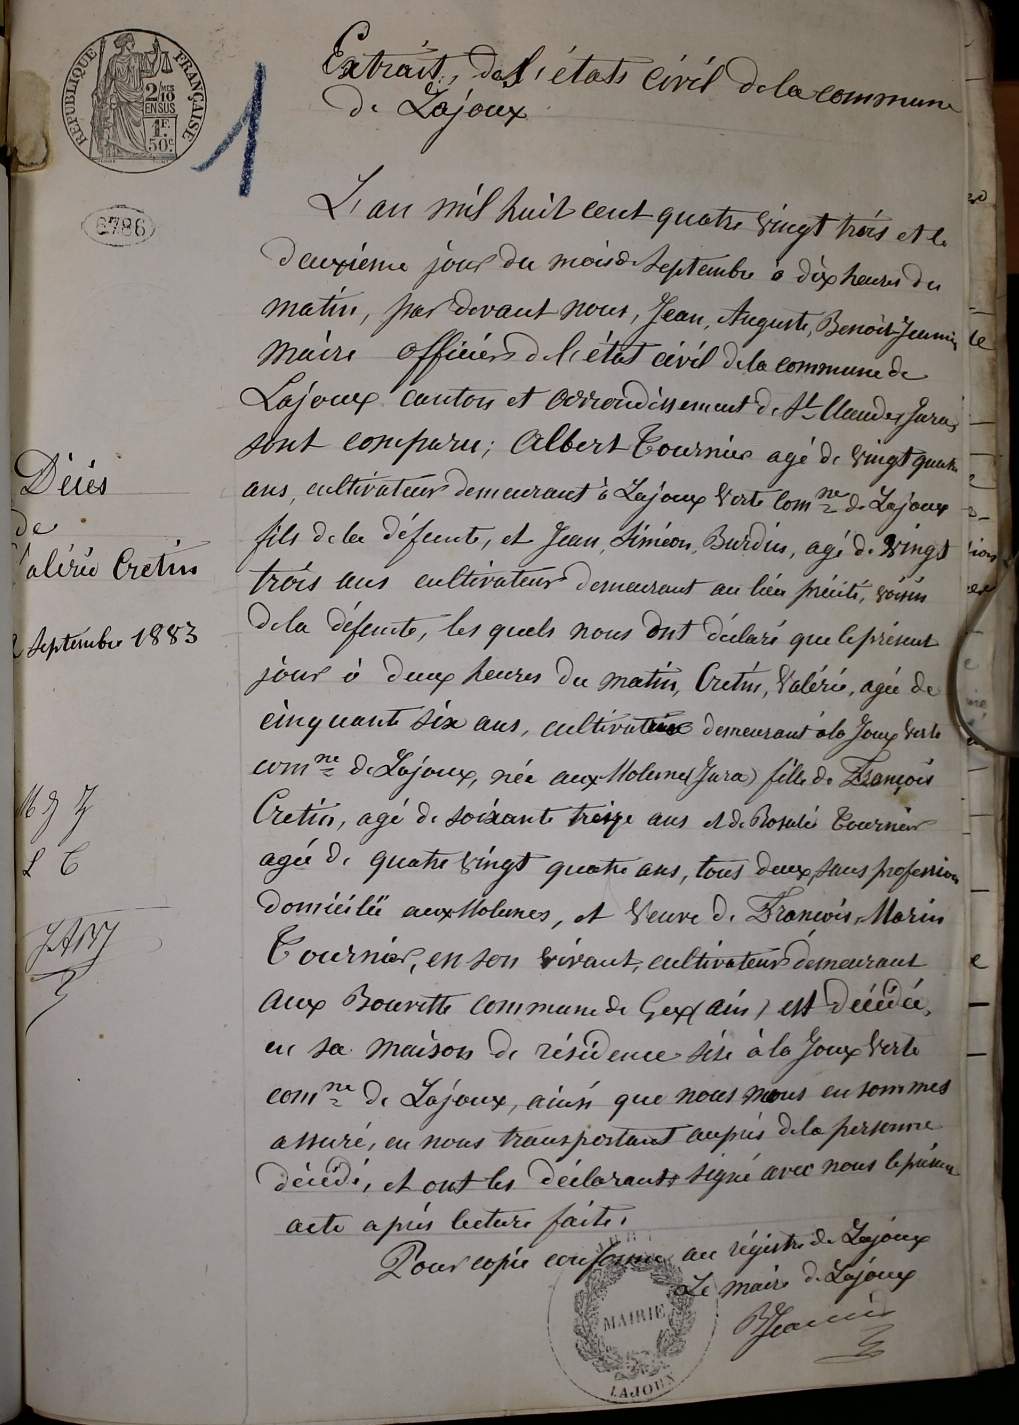 RÉPUBLIQUE FRANÇAISE
2/10 EN SUS
1F. 50c.
6786
1
Extrait, des l'états civil de la commune
de Lajoux
L'an mil huit cent quatre vingt trois et le
deuxième jour du mois de Septembre à dix heures du
matin, par devant nous, Jean, Auguste, Benoit-Jeannin
Maire officier de l'état civil de la commune de
Lajoux canton et arrondissement de St Claude, Jura,
sont comparu; Albert Tournier agé de vingt quatre
ans, cultivateur demeurant à Lajoux Verte Comne de Lajoux
fils de la défunte, et Jean, Siméon, Burdin, agé de vingt
trois ans cultivateur demeurant au lieu précité, voisin
de la défunte, les quels nous ont déclaré que le présent
jour à deux heures du matin, Cretin, Valérie, agée de
cinquante six ans, cultivatrice demeurant à la Joux Verte
comne de Lajoux, née aux Molunes (Jura) fille de François
Cretin, agé de soixante treize ans et de Rosalie Tournier
agée de quatre vingt quatre ans, tous deux, sans profession
domicilié aux Molunes, et Veuve de François, Marin
Tournier, en son vivant, cultivateur demeurant
aux Bourette commune de Gex (ain) est décédée,
en sa maison de résidence sise à la Joux Verte
comne de Lajoux, ainsi que nous nous en sommes
assuré, en nous transportant auprès de la personne
décédé, et ont les déclarants signé avec nous le présent
acte après lecture faite.
Pour copie conforme au régistre de Lajoux
Le maire de Lajoux
BJeannin
MAIRIE
LAJOUX
Décés
de
Valérie Cretin
2 Septembre 1883